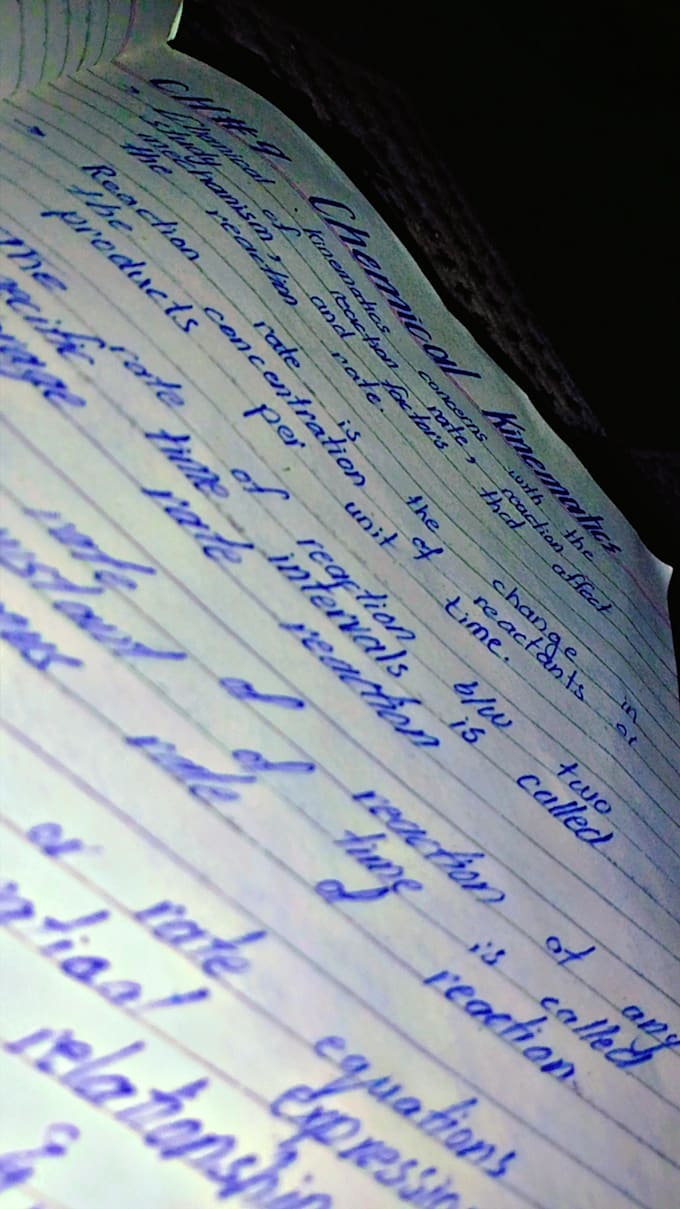 CH#9 Chemical Kinematics
• Chemical kinematics concerns with the
study of reaction rate, reaction
mechanism, and factors that affect
the reaction rate.
Reaction rate is the change in
the concentration of reactants or
products per unit time.
The rate of reaction b/w two
specific time intervals is called
average rate reaction
rate of reaction at any
instant of time is called
rate of reaction.
or rate equations
expression
relationship